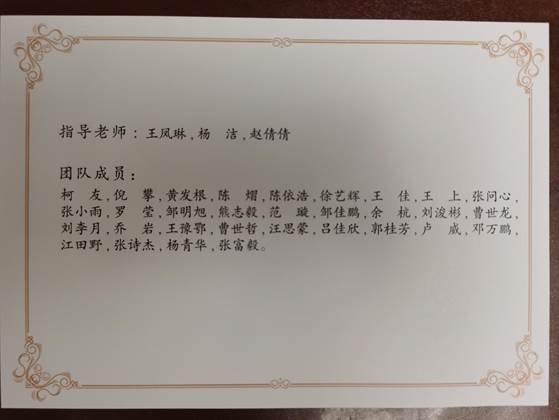 指导老师：王凤琳,杨　洁,赵倩倩
团队成员：
柯　友,倪　攀,黄发根,陈　熠,陈依浩,徐艺辉,王　佳,王　上,张问心,
张小雨,罗　莹,邹明旭,熊志毅,范　璇,邹佳鹏,余　杭,刘浚彬,曹世龙,
刘李月,乔　岩,王豫鄂,曹世哲,汪思蒙,吕佳欣,郭桂芳,卢　威,邓万鹏,
江田野,张诗杰,杨青华,张富毅。